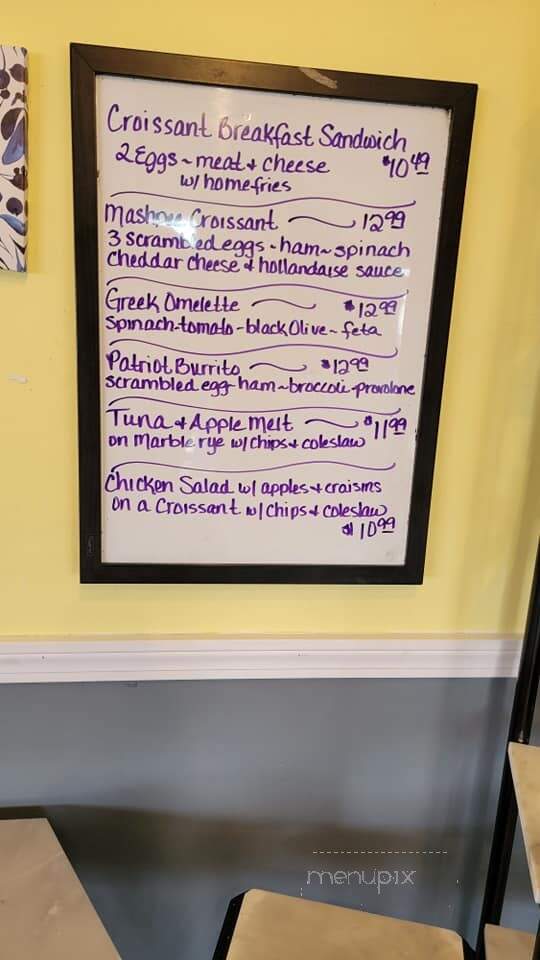 Croissant Breakfast Sandwich
2 Eggs ~ meat & cheese $10 49
w/ homefries
Croissant 12 99
3 scrambled eggs - ham ~ spinach
cheddar cheese & hollandaise sauce
Greek Omelette $12 99
spinach-tomato-black Olive ~ feta
Patriot Burrito $12 99
scrambled egg-ham~broccoli-provolone
Tuna & Apple Melt $11 99
on Marble rye w/ chips & coleslaw
Chicken Salad w/ apples & craisins
on a Croissant w/ chips & coleslaw
$10 99
menupix